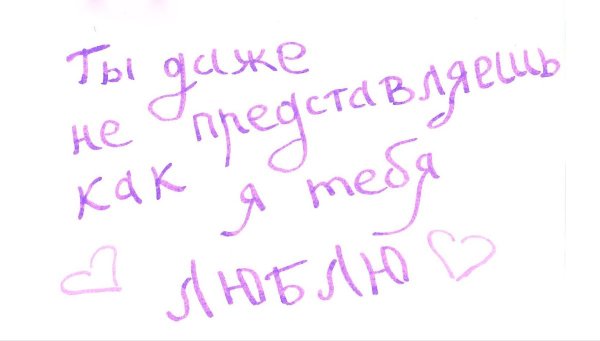 Ты даже
не представляешь
как я тебя
ЛЮБЛЮ